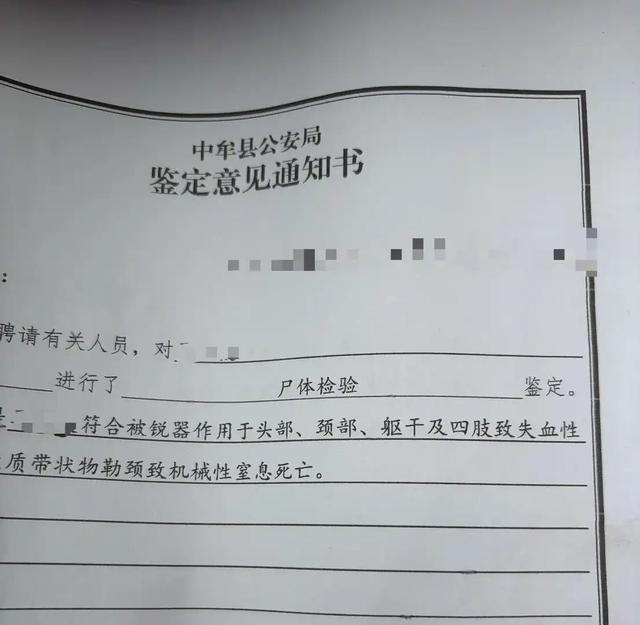 中牟县公安局
鉴定意见通知书
:
聘请有关人员，对
进行了 尸体检验 鉴定。
符合被锐器作用于头部、颈部、躯干及四肢致失血性
质带状物勒颈致机械性窒息死亡。